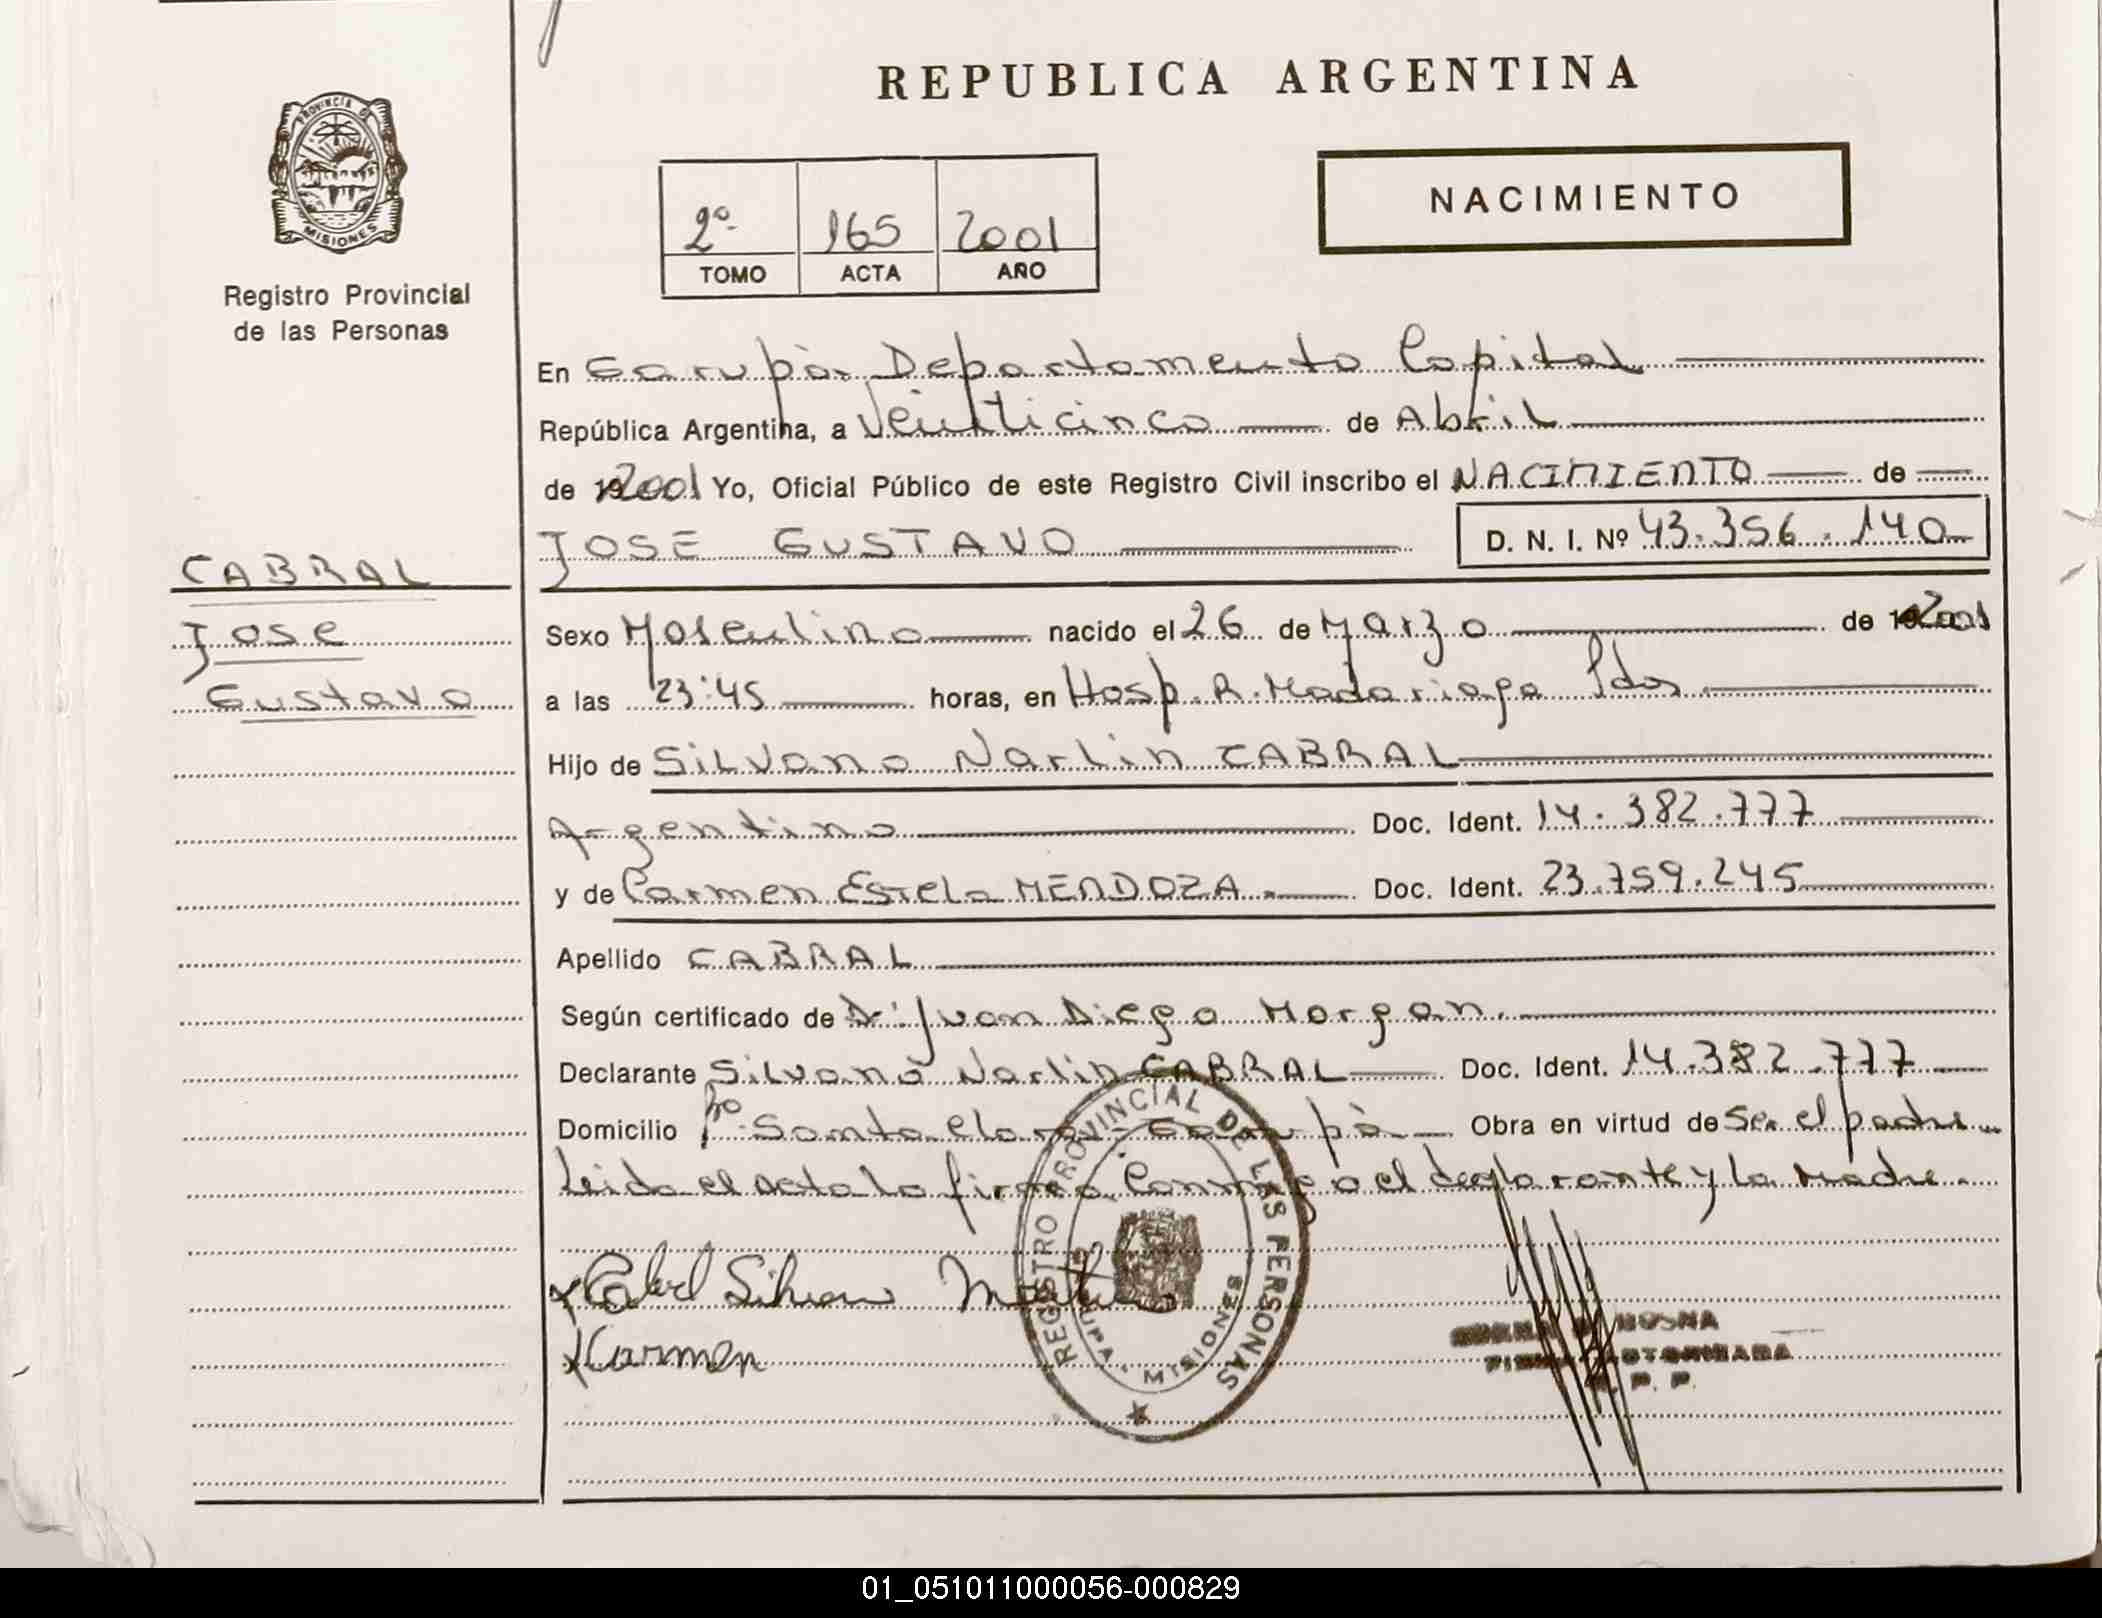 REPUBLICA ARGENTINA
PROVINCIA DE
MISIONES
Registro Provincial
de las Personas
NACIMIENTO
2º 165 2001
TOMO ACTA AÑO
En Garupà. Departamento Capital
República Argentina, a Veinticinco de Abril
de 2001 Yo, Oficial Público de este Registro Civil inscribo el NACIMIENTO de
JOSE GUSTAVO D. N. I. Nº 43.356.140
CABRAL
Jose
Gustavo
Sexo Masculino nacido el 26 de Marzo de 2001
a las 23:45 horas, en Hosp. R. Madariaga Pdas
Hijo de Silvano Narlin CABRAL
Argentino Doc. Ident. 14.382.777
y de Carmen Estela MENDOZA.- Doc. Ident. 23.759.245
Apellido CABRAL
Según certificado de Dr. Juan Diego Morgan.
Declarante Silvano Narlin CABRAL Doc. Ident. 14.382.777
Domicilio Bo. Santa Clara - Garupà Obra en virtud de Ser el padre
Leida el acta la firma Conmigo el declarante y la Madre.
Cabral Silvano
Carmen
REGISTRO PROVINCIAL DE LAS PERSONAS
MISIONES
FIRMA AUTORIZADA
R. P. P.
01_051011000056-000829